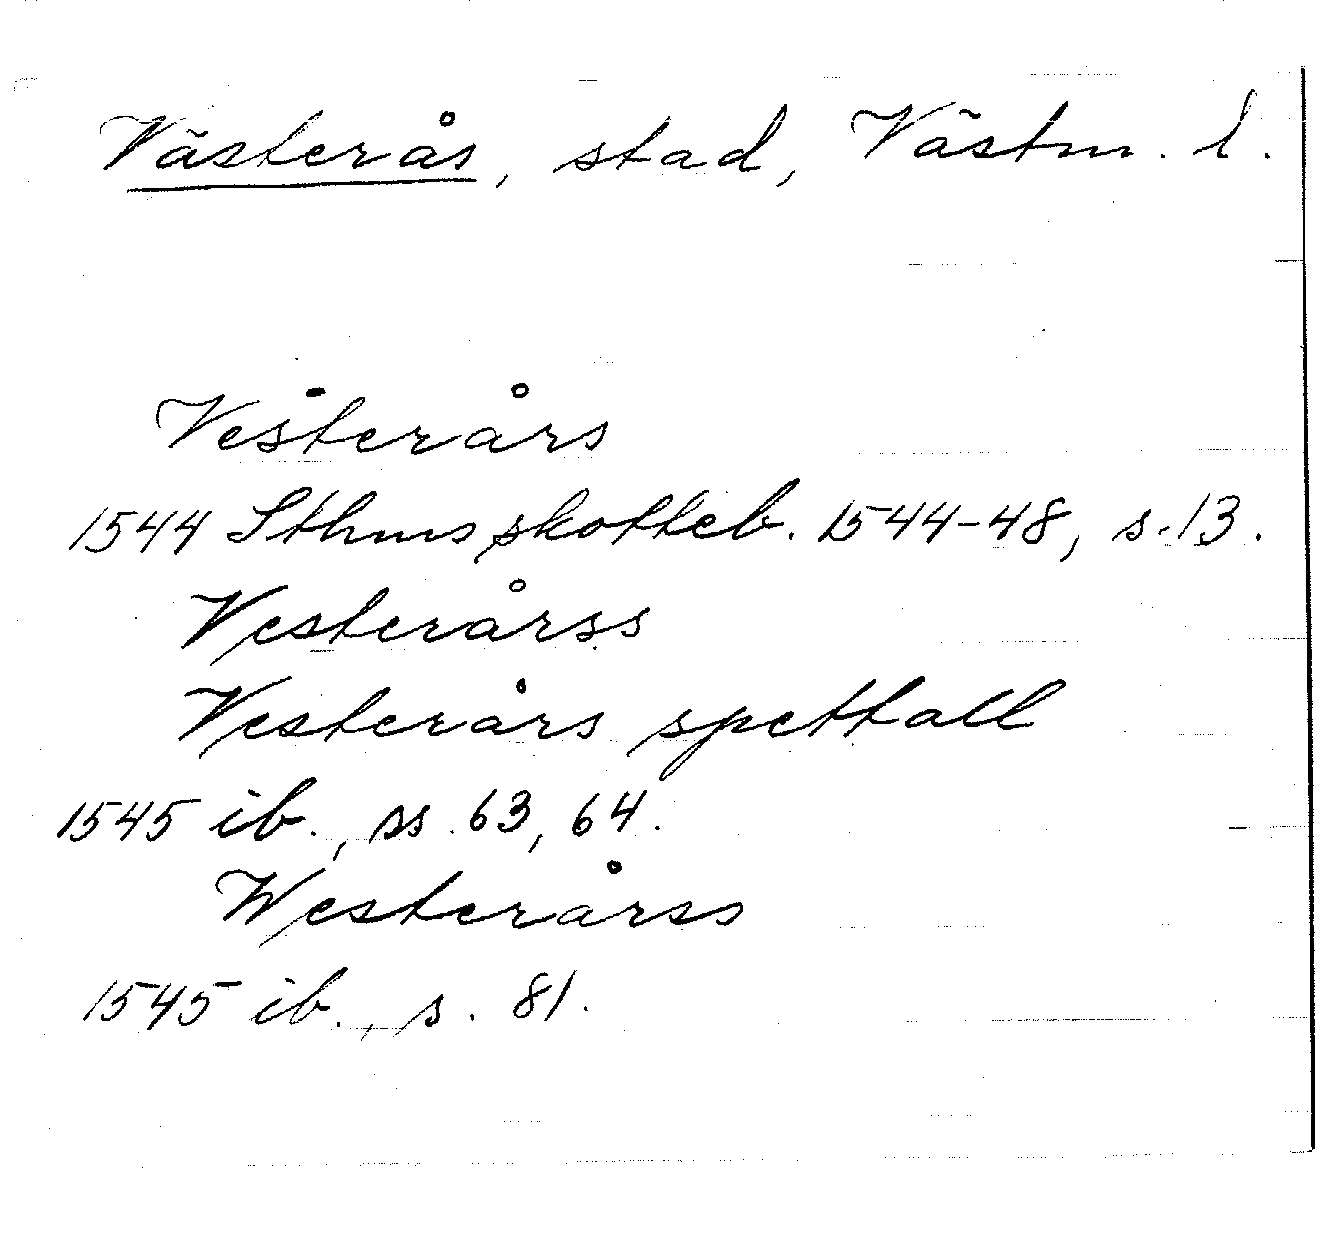 Västerås, stad, Västm. l.
Vesterårs
1544 Sthms skotteb. 1544-48, s. 13.
Vesterårss
Vesterårs spettall
1545 ib., ss. 63, 64.
Westerårss
1545 ib., s. 81.